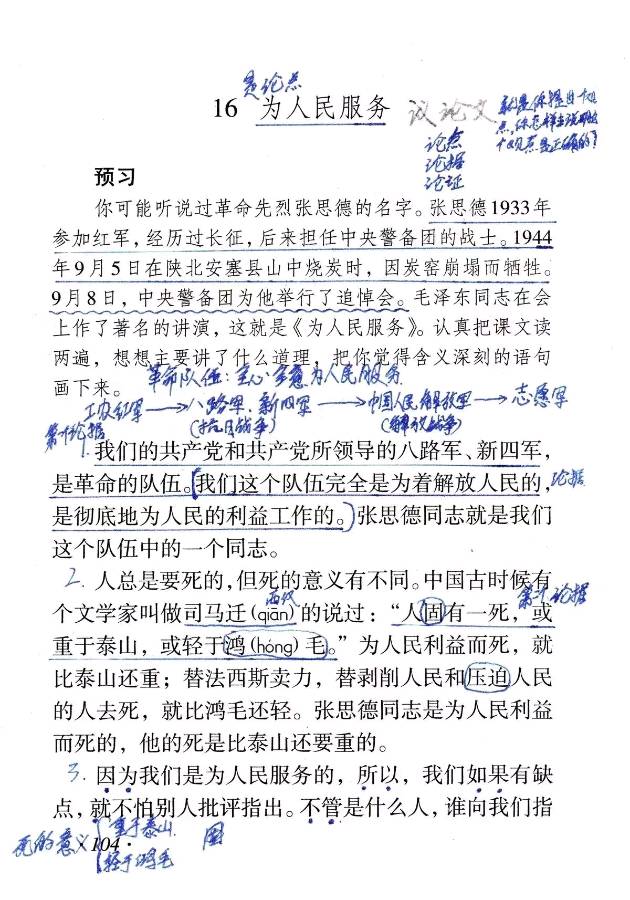 是论点
16 为人民服务 议论文
论点
论据
论证
预习
你可能听说过革命先烈张思德的名字。张思德1933年
参加红军，经历过长征，后来担任中央警备团的战士。1944
年9月5日在陕北安塞县山中烧炭时，因炭窑崩塌而牺牲。
9月8日，中央警备团为他举行了追悼会。毛泽东同志在会
上作了著名的讲演，这就是《为人民服务》。认真把课文读
两遍，想想主要讲了什么道理，把你觉得含义深刻的语句
画下来。
革命队伍：全心全意为人民服务
工农红军→八路军、新四军→中国人民解放军→志愿军
(抗日战争) (解放战争)
第一个论据
1.我们的共产党和共产党所领导的八路军、新四军，
是革命的队伍。我们这个队伍完全是为着解放人民的，论据
是彻底地为人民的利益工作的。张思德同志就是我们
这个队伍中的一个同志。
2.人总是要死的，但死的意义有不同。中国古时候有
西汉 第二个论据
个文学家叫做司马迁(qiān)的说过：“人固有一死，或
重于泰山，或轻于鸿(hóng)毛。”为人民利益而死，就
比泰山还重；替法西斯卖力，替剥削人民和压迫人民
的人去死，就比鸿毛还轻。张思德同志是为人民利益
而死的，他的死是比泰山还要重的。
3.因为我们是为人民服务的，所以，我们如果有缺
点，就不怕别人批评指出。不管是什么人，谁向我们指
死的意义 重于泰山
轻于鸿毛
·104·